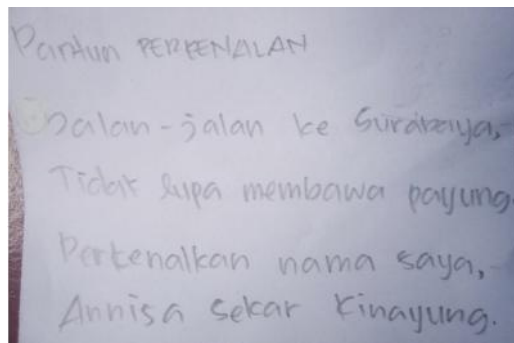 Pantun PERKENALAN
Jalan-jalan ke Surabaya,
Tidak lupa membawa payung.
Perkenalkan nama saya,
Annisa Sekar Kinayung.